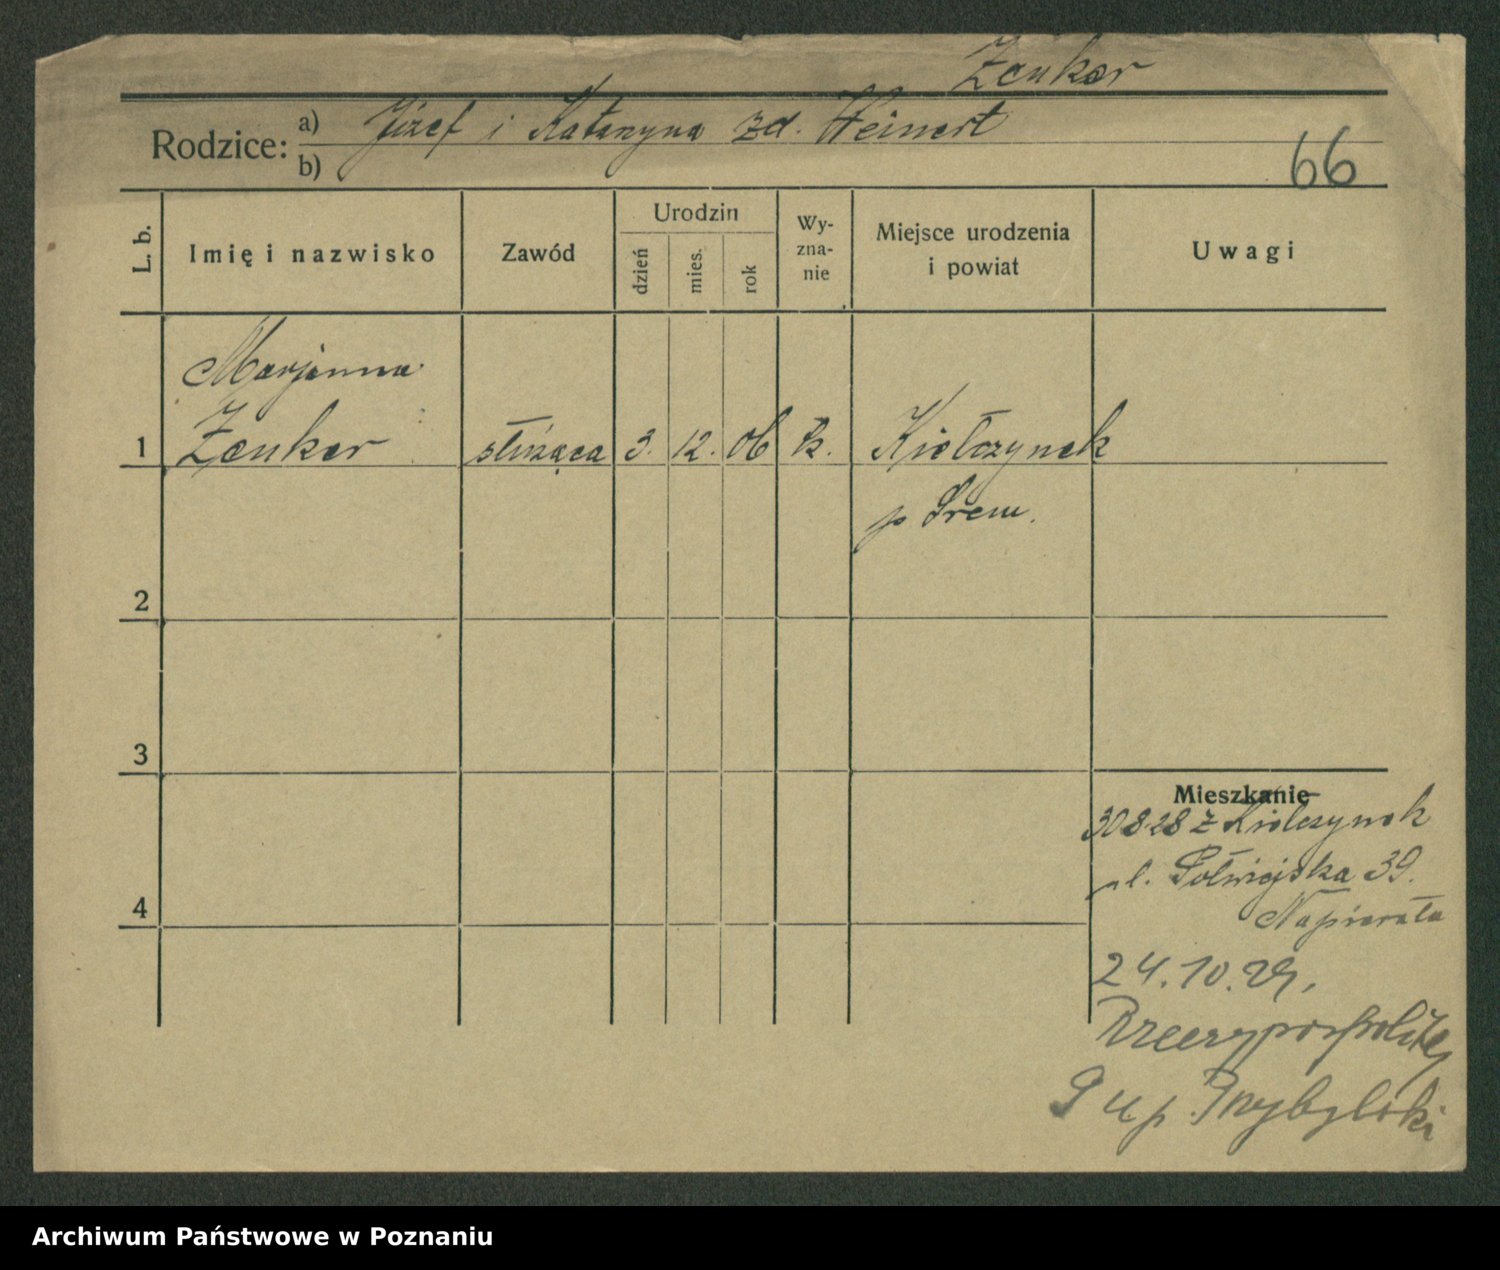 Zenker
Rodzice: a) Józef i Katarzyna zd. Weinert
b)
66
L. b.
Imię i nazwisko
Zawód
Urodzin
dzień
mies.
rok
Wy-
zna-
nie
Miejsce urodzenia
i powiat
Uwagi
Marjanna
1 Zenker służąca 3. 12. 06 k. Kiełczynek
p Śrem.
2
3
Mieszkanie
30 8 28 z Kiełczynek
ul. Półwiejska 39.
Napierała
4
24.10.29,
Rzeczypospolitej
9 u p. Przybylski
Archiwum Państwowe w Poznaniu